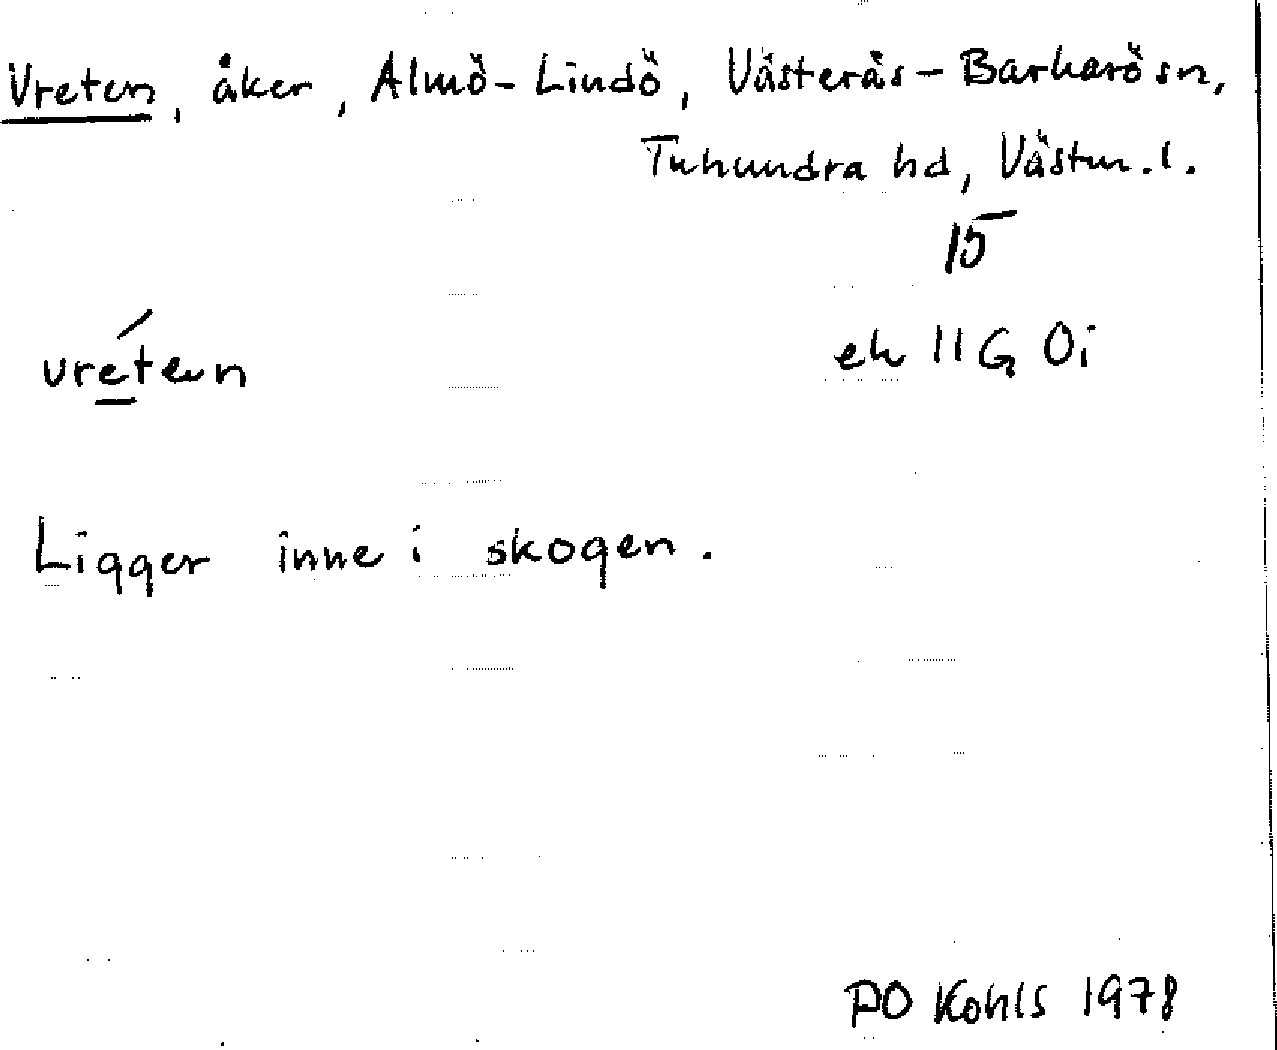 Vreten, åker, Almö-Lindö, Västerås-Barkarö sn,
Tuhundra hd, Västm. l.
15
vréten
ek 11G 0i
Ligger inne i skogen.
PO Kohls 1978